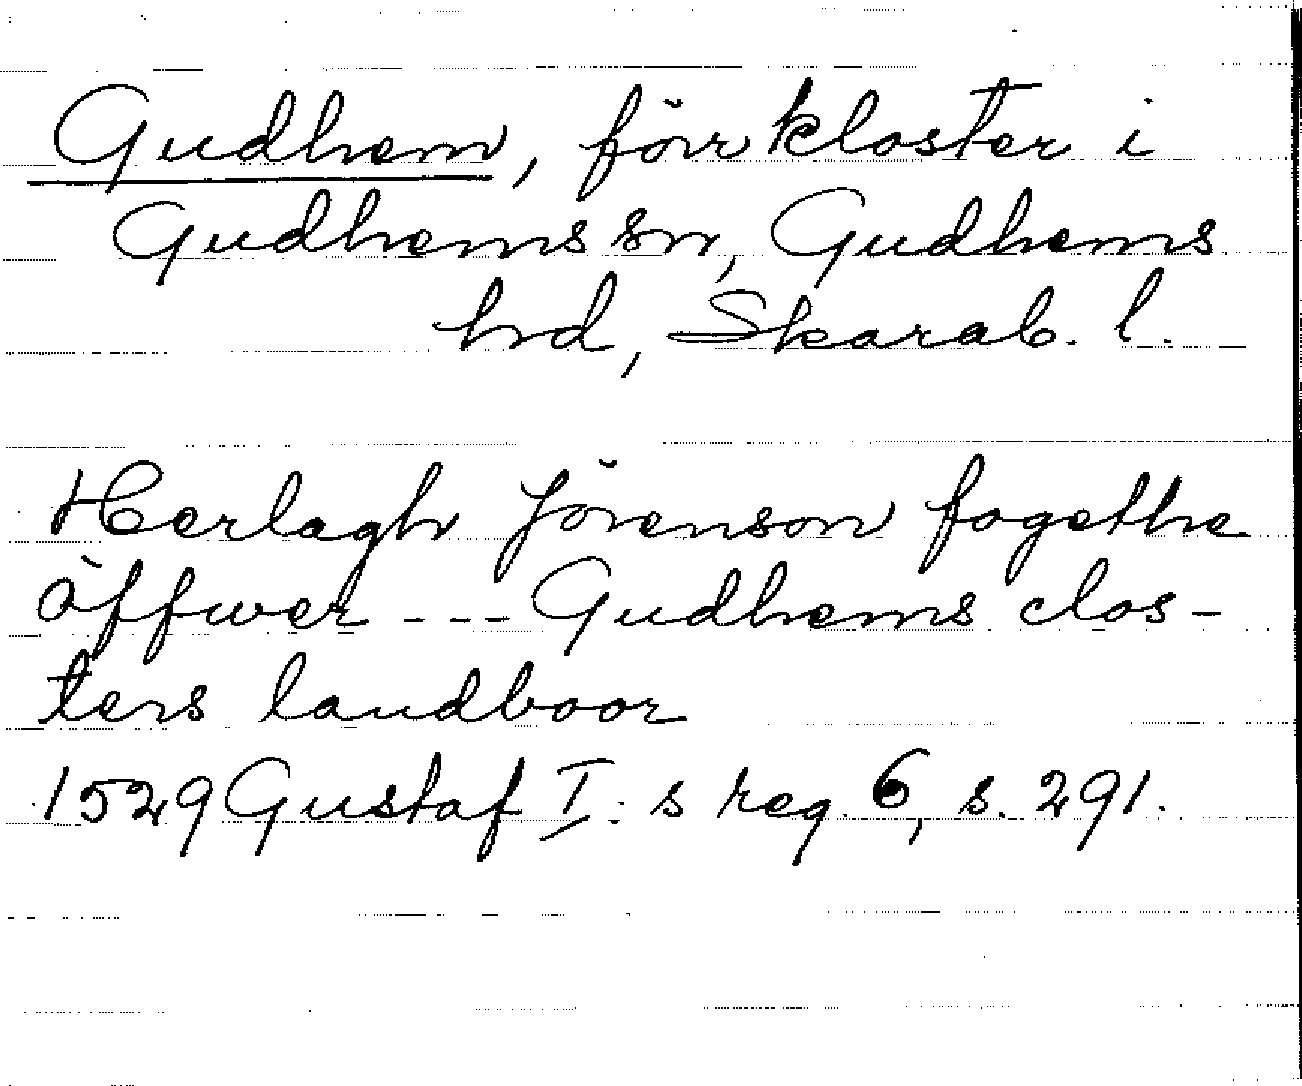 Gudhem, förr kloster i
Gudhems sn, Gudhems
hd, Skarab. l.
Herlagh Jörenson fogethe
öffwer --- Gudhems clos-
ters landboor
1529 Gustaf I:s reg. 6, s. 291.